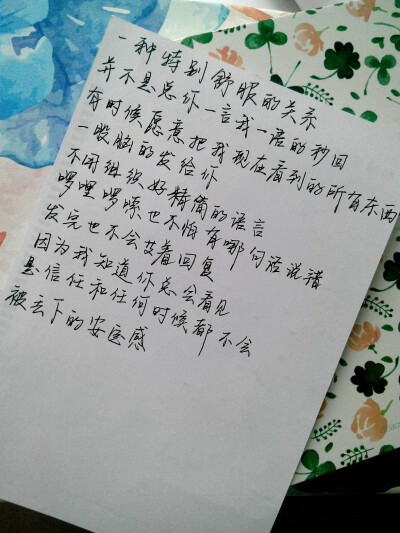 一种特别舒服的关系
并不是总你一言我一语的秒回
有时候愿意把我现在看到的所有东西
一股脑的发给你
不用组织好精简的语言
啰哩啰嗦也不怕有哪句话说错
发完也不会女着回复
因为我知道你总会看见
是信任和任何时候都不会
被丢下的安全感